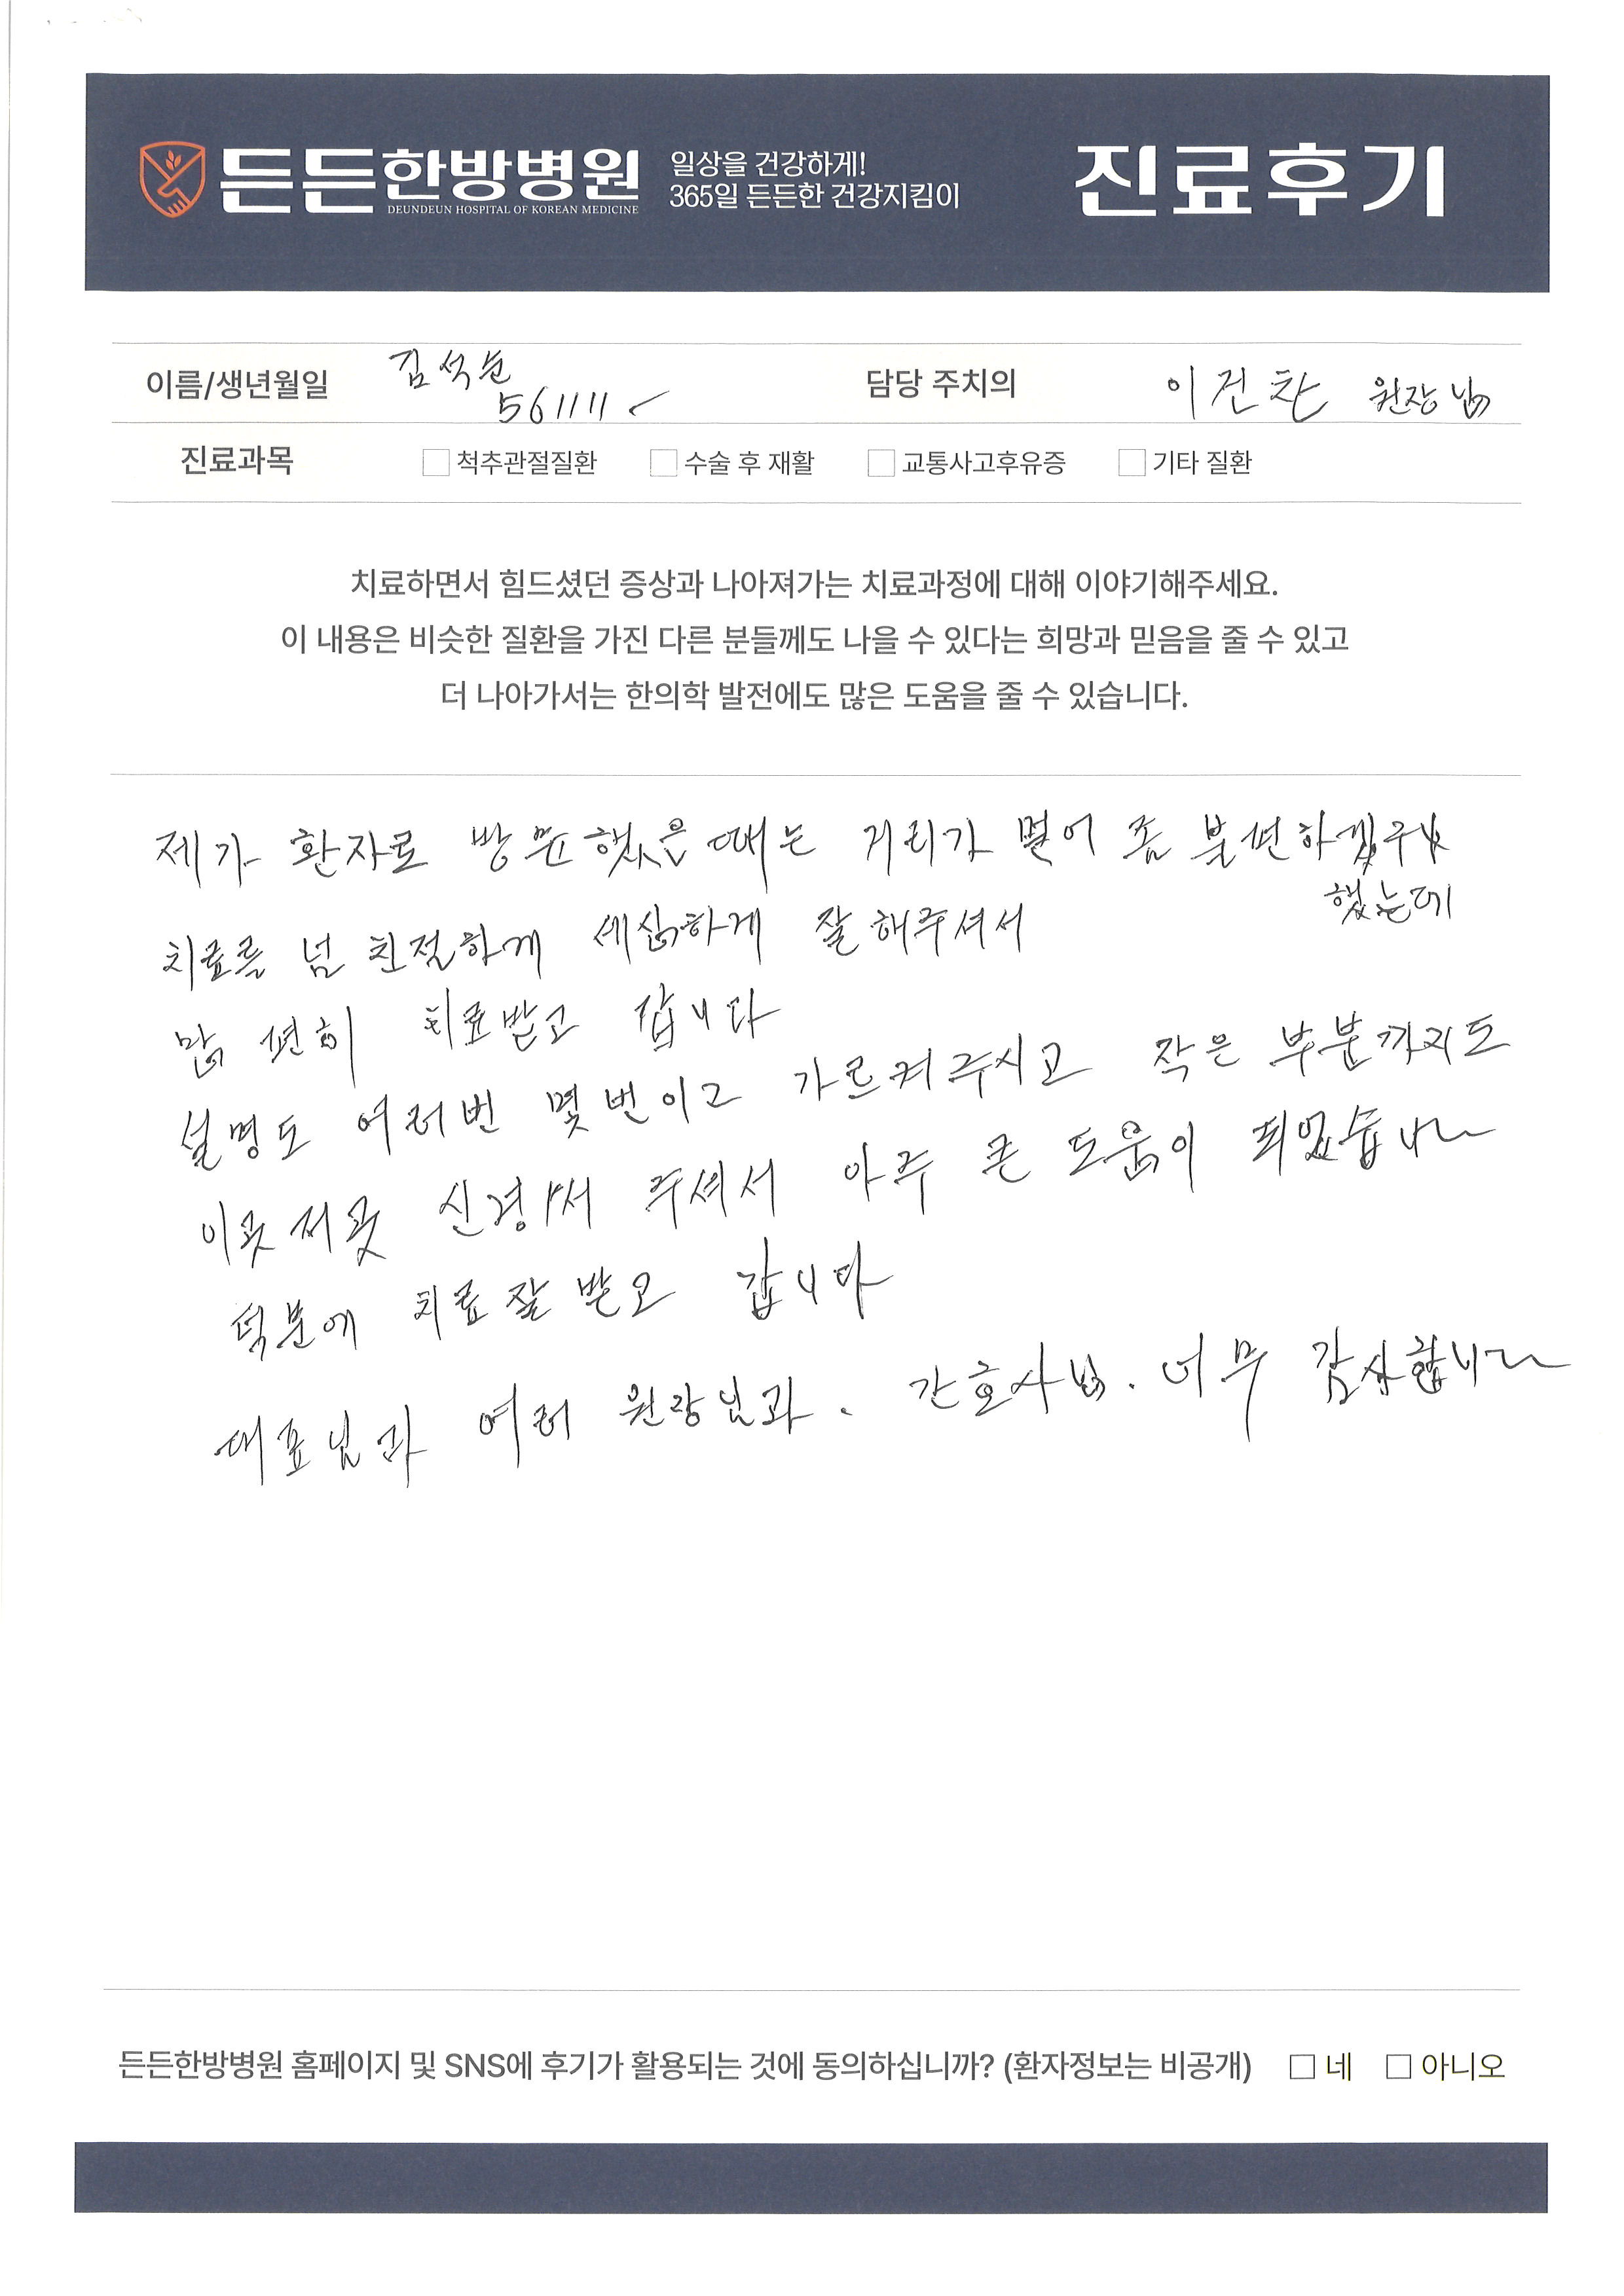 든든한방병원
DEUNDEUN HOSPITAL OF KOREAN MEDICINE
일상을 건강하게!
365일 든든한 건강지킴이
진료후기
이름/생년월일 김석순 561111 담당 주치의 이건찬 원장님
진료과목 □ 척추관절질환 □ 수술 후 재활 □ 교통사고후유증 □ 기타 질환
치료하면서 힘드셨던 증상과 나아져가는 치료과정에 대해 이야기해주세요.
이 내용은 비슷한 질환을 가진 다른 분들께도 나을 수 있다는 희망과 믿음을 줄 수 있고
더 나아가서는 한의학 발전에도 많은 도움을 줄 수 있습니다.
제가 환자로 방문했을 때는 거리가 멀어 좀 불편하겠구나
했는데
치료를 넘 친절하게 세심하게 잘해주셔서
맘 편히 치료받고 갑니다
설명도 여러번 몇번이고 가르켜주시고 작은 부분까지도
이곳저곳 신경써 주셔서 아주 큰 도움이 되었습니다
덕분에 치료 잘 받고 갑니다
대표님과 여러 원장님과. 간호사님. 너무 감사합니다
든든한방병원 홈페이지 및 SNS에 후기가 활용되는 것에 동의하십니까? (환자정보는 비공개) □ 네 □ 아니오